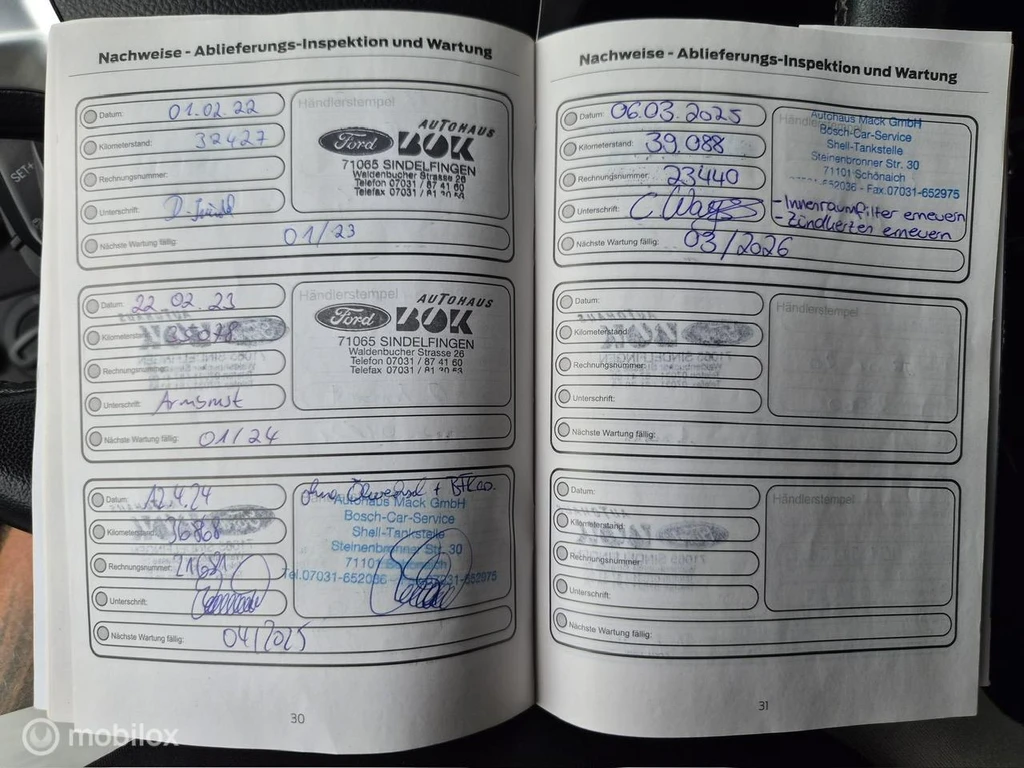 Nachweise - Ablieferungs-Inspektion und Wartung
Datum: 01.02.22
Kilometerstand: 32427
Rechnungsnummer:
Unterschrift:
Nächste Wartung fällig: 01/23
Händlerstempel
Ford AUTOHAUS BÜK
71065 SINDELFINGEN
Waldenbucher Strasse 26
Telefon 07031 / 87 41 60
Telefax 07031 / 81 20 53
Datum: 22.02.23
Kilometerstand:
Rechnungsnummer:
Unterschrift: Armbrust
Nächste Wartung fällig: 01/24
Händlerstempel
Ford AUTOHAUS BÜK
71065 SINDELFINGEN
Waldenbucher Strasse 26
Telefon 07031 / 87 41 60
Telefax 07031 / 81 20 53
Datum: 12.4.24
Kilometerstand: 36868
Rechnungsnummer:
Unterschrift:
Nächste Wartung fällig: 04/2025
Ölwechsel +
Autohaus Mack GmbH
Bosch-Car-Service
Shell-Tankstelle
Steinenbronner Str. 30
71101 Schönaich
Tel.07031-652036 - Fax.07031-652975
30
Nachweise - Ablieferungs-Inspektion und Wartung
Datum: 06.03.2025
Kilometerstand: 39.088
Rechnungsnummer: 23440
Unterschrift:
Nächste Wartung fällig: 03/2026
Autohaus Mack GmbH
Bosch-Car-Service
Shell-Tankstelle
Steinenbronner Str. 30
71101 Schönaich
652036 - Fax.07031-652975
- Innenraumfilter erneuern
- Zündkerzen erneuern
Datum:
Kilometerstand:
Rechnungsnummer:
Unterschrift:
Nächste Wartung fällig:
Händlerstempel
Datum:
Kilometerstand:
Rechnungsnummer:
Unterschrift:
Nächste Wartung fällig:
Händlerstempel
31
SET+
mobilox